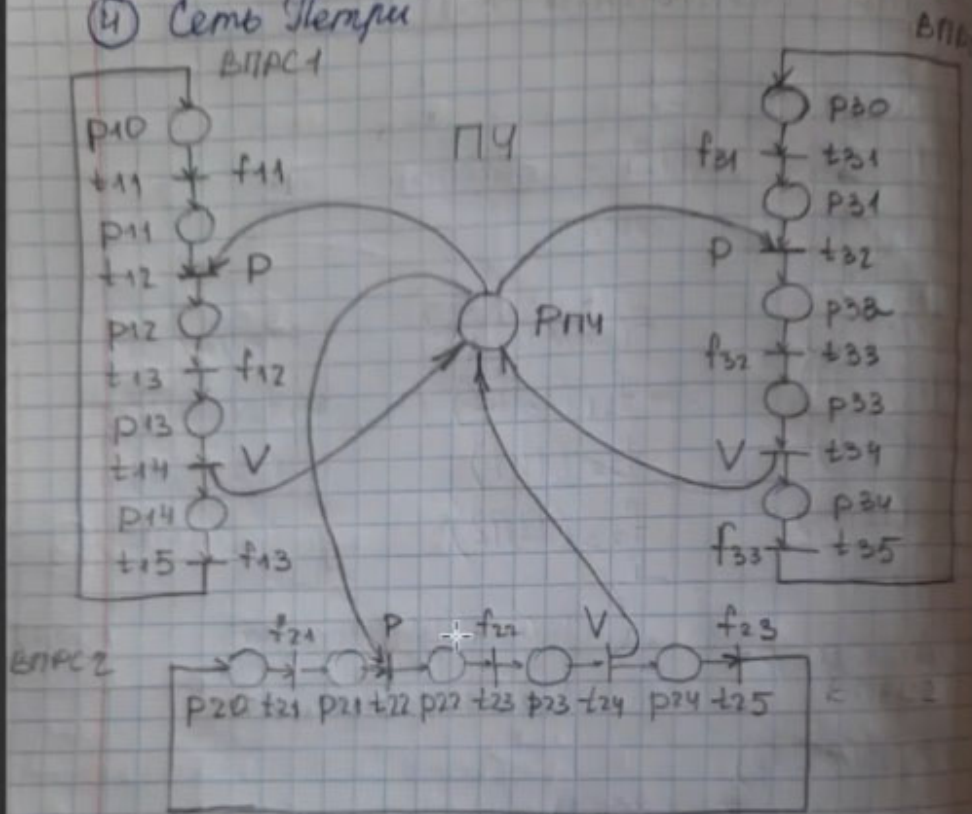 4 Сеть Петри
ВПРС1
p10
t11 f11
p11
t12 P
p12
t13 f12
p13
t14 V
p14
t15 f13
ПЧ
РПЧ
p30
f31 t31
p31
P t32
p32
f32 t33
p33
V t34
p34
f33 t35
ВПРС2
f21 P f22 V f23
p20 t21 p21 t22 p22 t23 p23 t24 p24 t25